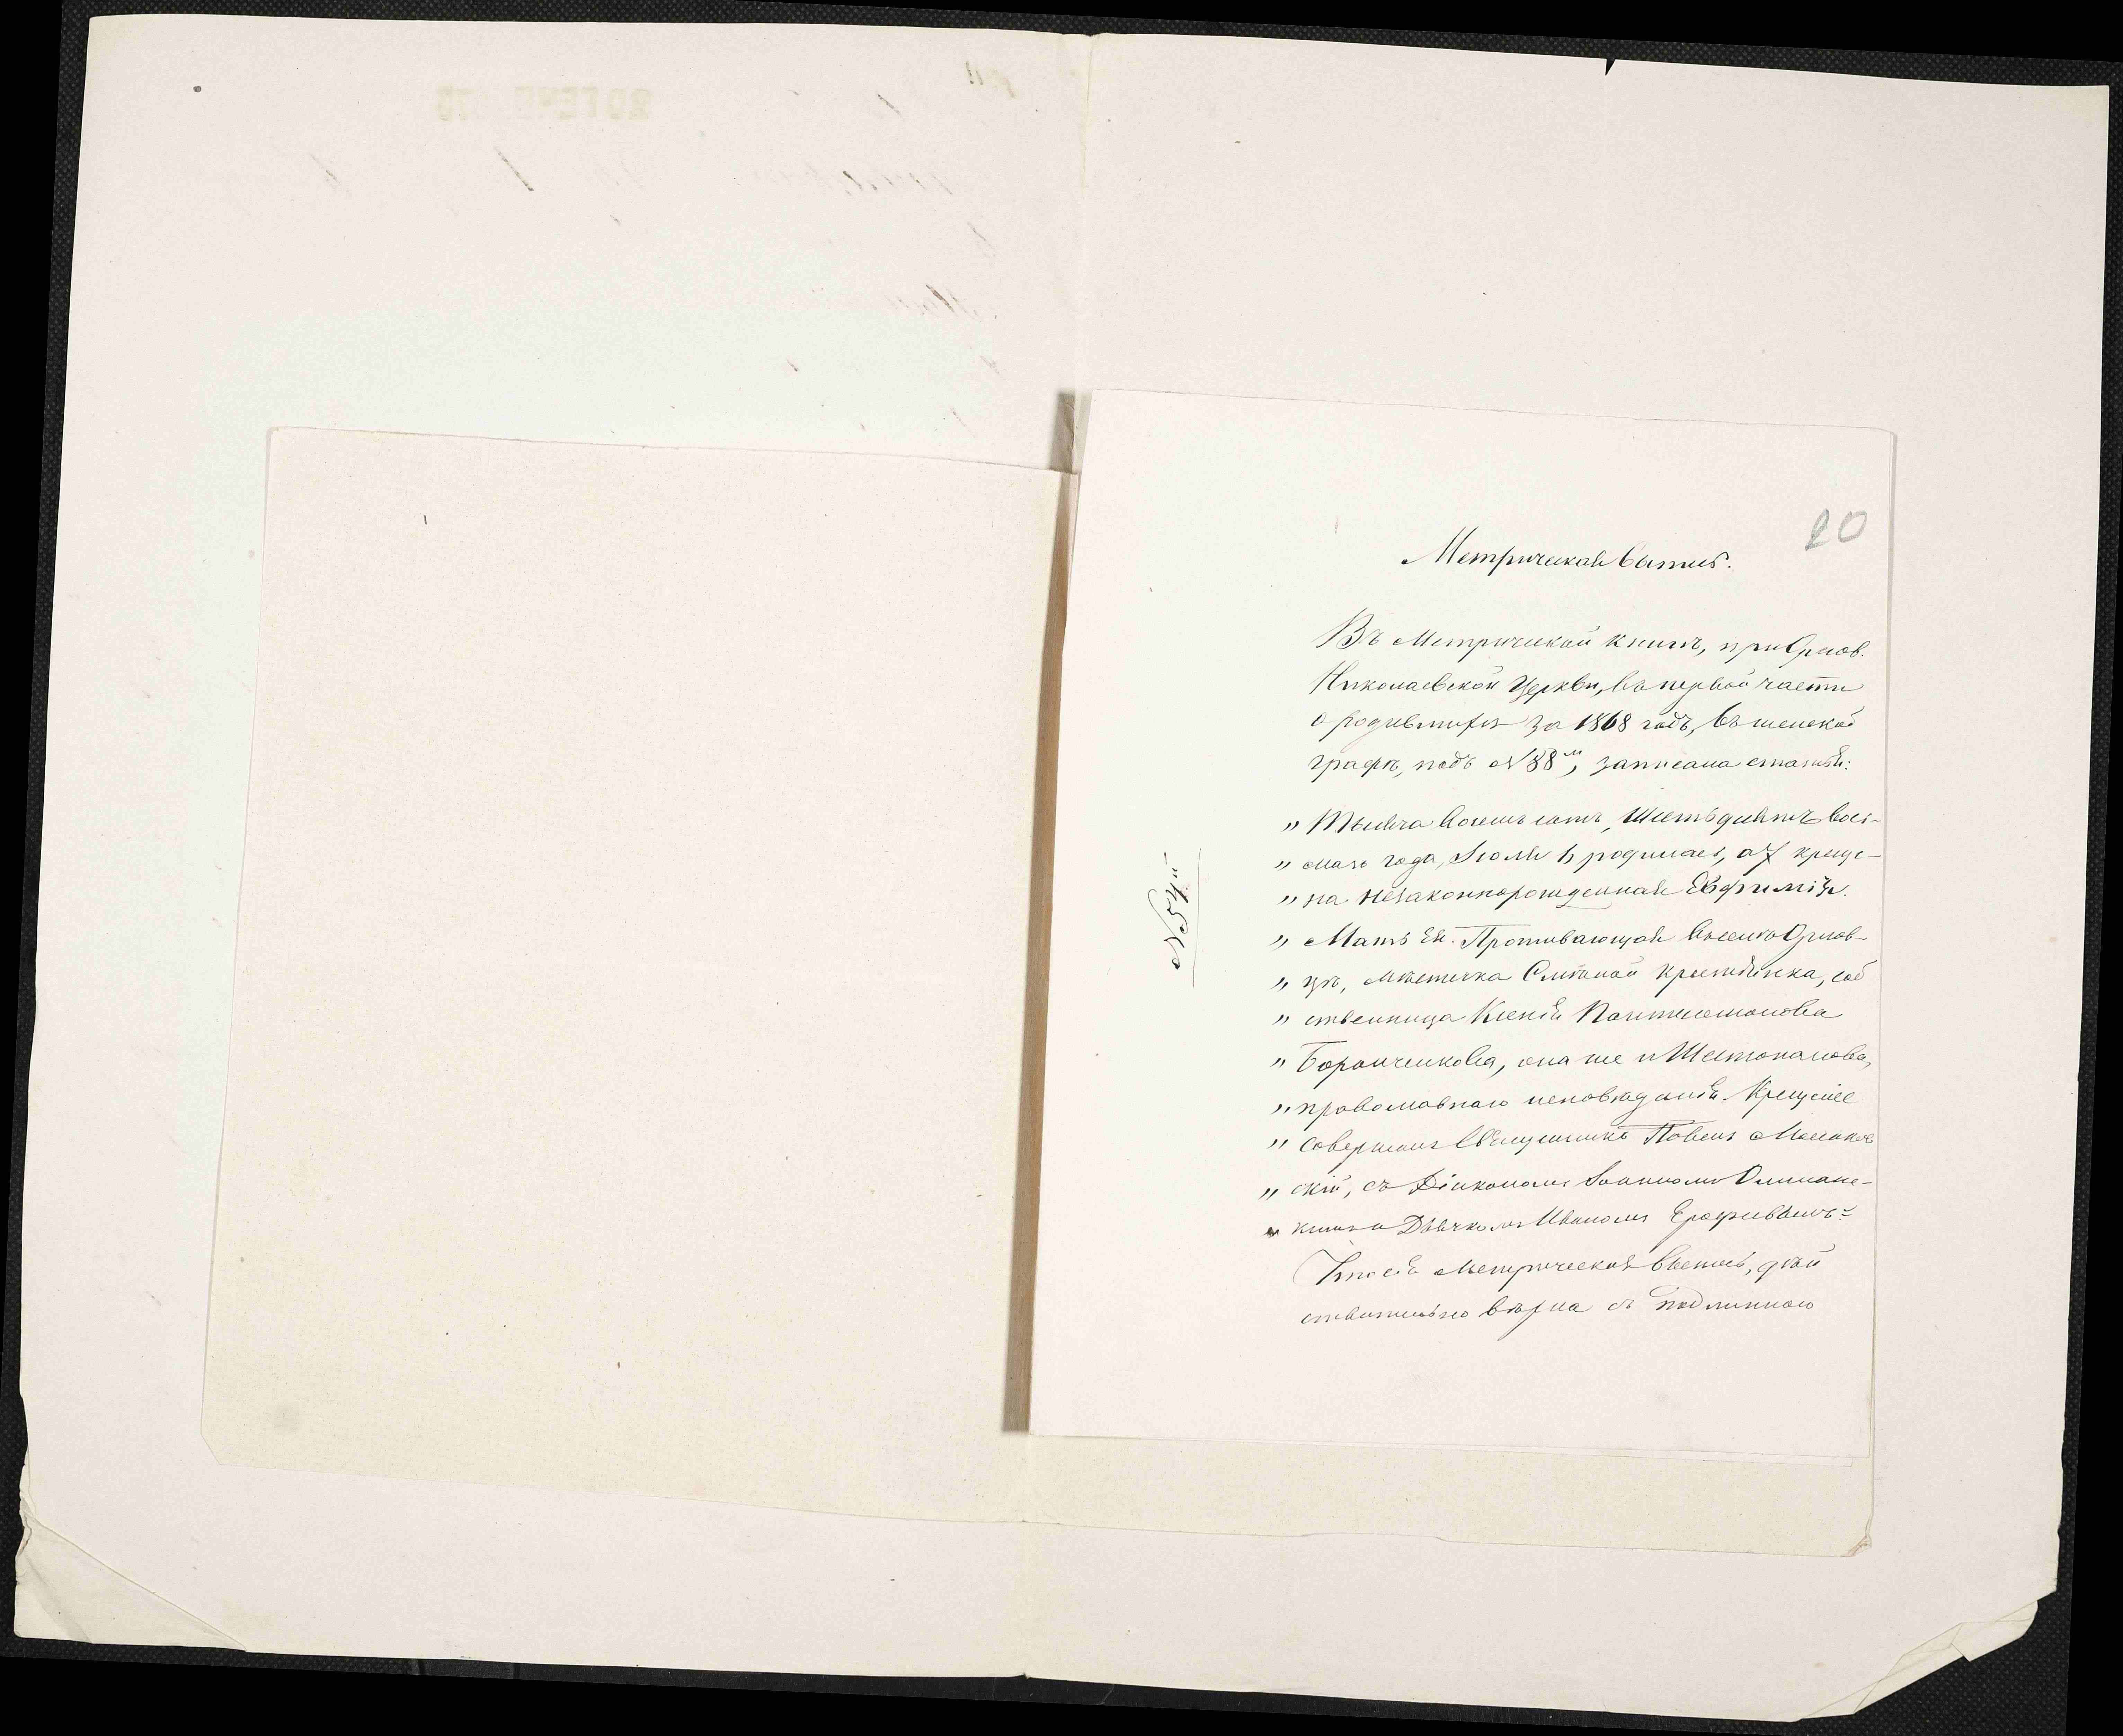 20
Метрическая выпись.
Въ Метрической книгѣ, при Орлов.
Николаевской Церкви, въ первой части
о родившихся за 1868 годъ, въ женской
графѣ, подъ № 88м, записана статья:
" Тысяча восемь сотъ, Шестьдесятъ вось-
" маго года, Іюля родилась, а 7 креще-
" на незаконнорожденная Евфимія.
" Мать Ея. Проживающая въ селѣ Орлов-
" цѣ, мѣстечка Смѣлой крестьянка, соб
" ственница Ксенія Пантелеимонова
" Боранченкова, она же и Шестопалова,
" православнаго исповѣданія. Крещеніе
" совершилъ Священникъ Павелъ
" скій, съ Діакономъ Іоанномъ
" кимъ и Дьячкомъ Иваномъ Ерофѣевымъ."
Что сія Метрическая выпись, дѣй
ствительно вѣрна съ подлинною
№ 54й